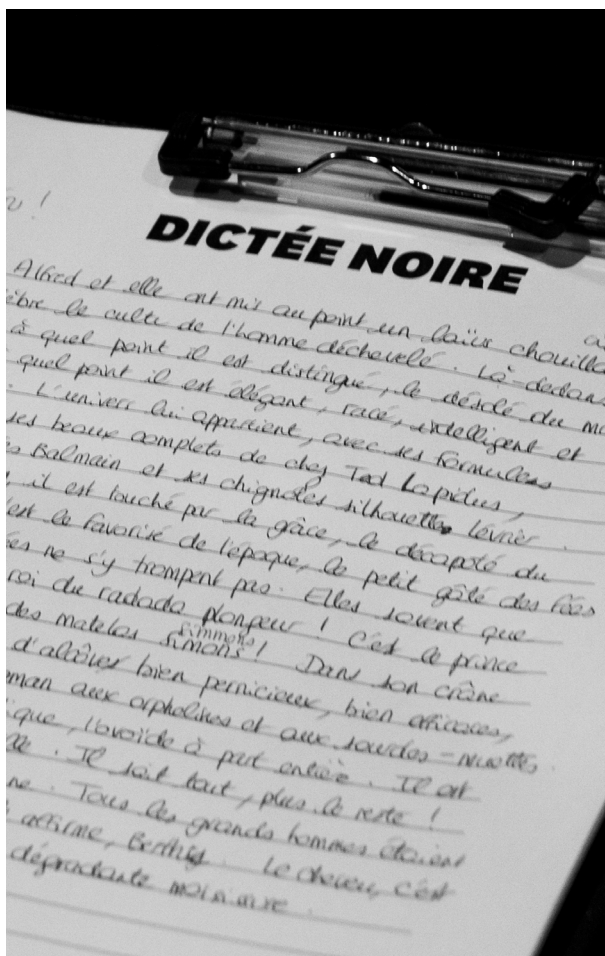 !
DICTÉE NOIRE
Alfred et elle ont mis au point un laïus chouilla
le culte de l'homme déchevelé. Là-dedans
à quel point il est distingué, le désolé du
quel point il est élégant, racé, intelligent et
L'univers lui appartient, avec ses formules
ses beaux complets de chez Ted Lapidus,
Balmain et ses chignoles silhouettes lévrier.
il est touché par la grâce, le décapoté du
est le favorisé de l'époque, le petit gâté des fées
ne s'y trompent pas. Elles savent que
roi du radada plongeur ! C'est le prince
simmons
des matelas simons ! Dans son crâne
d'alcôves bien pernicieux, bien efficaces,
aux orphelines et aux sourdes-muettes.
l'ovoïde à part entière. Il est
Il sait tout, plus le reste !
Tous les grands hommes étaient
affirme, Berthy. Le cheveu, c'est
dégradante moisissure.